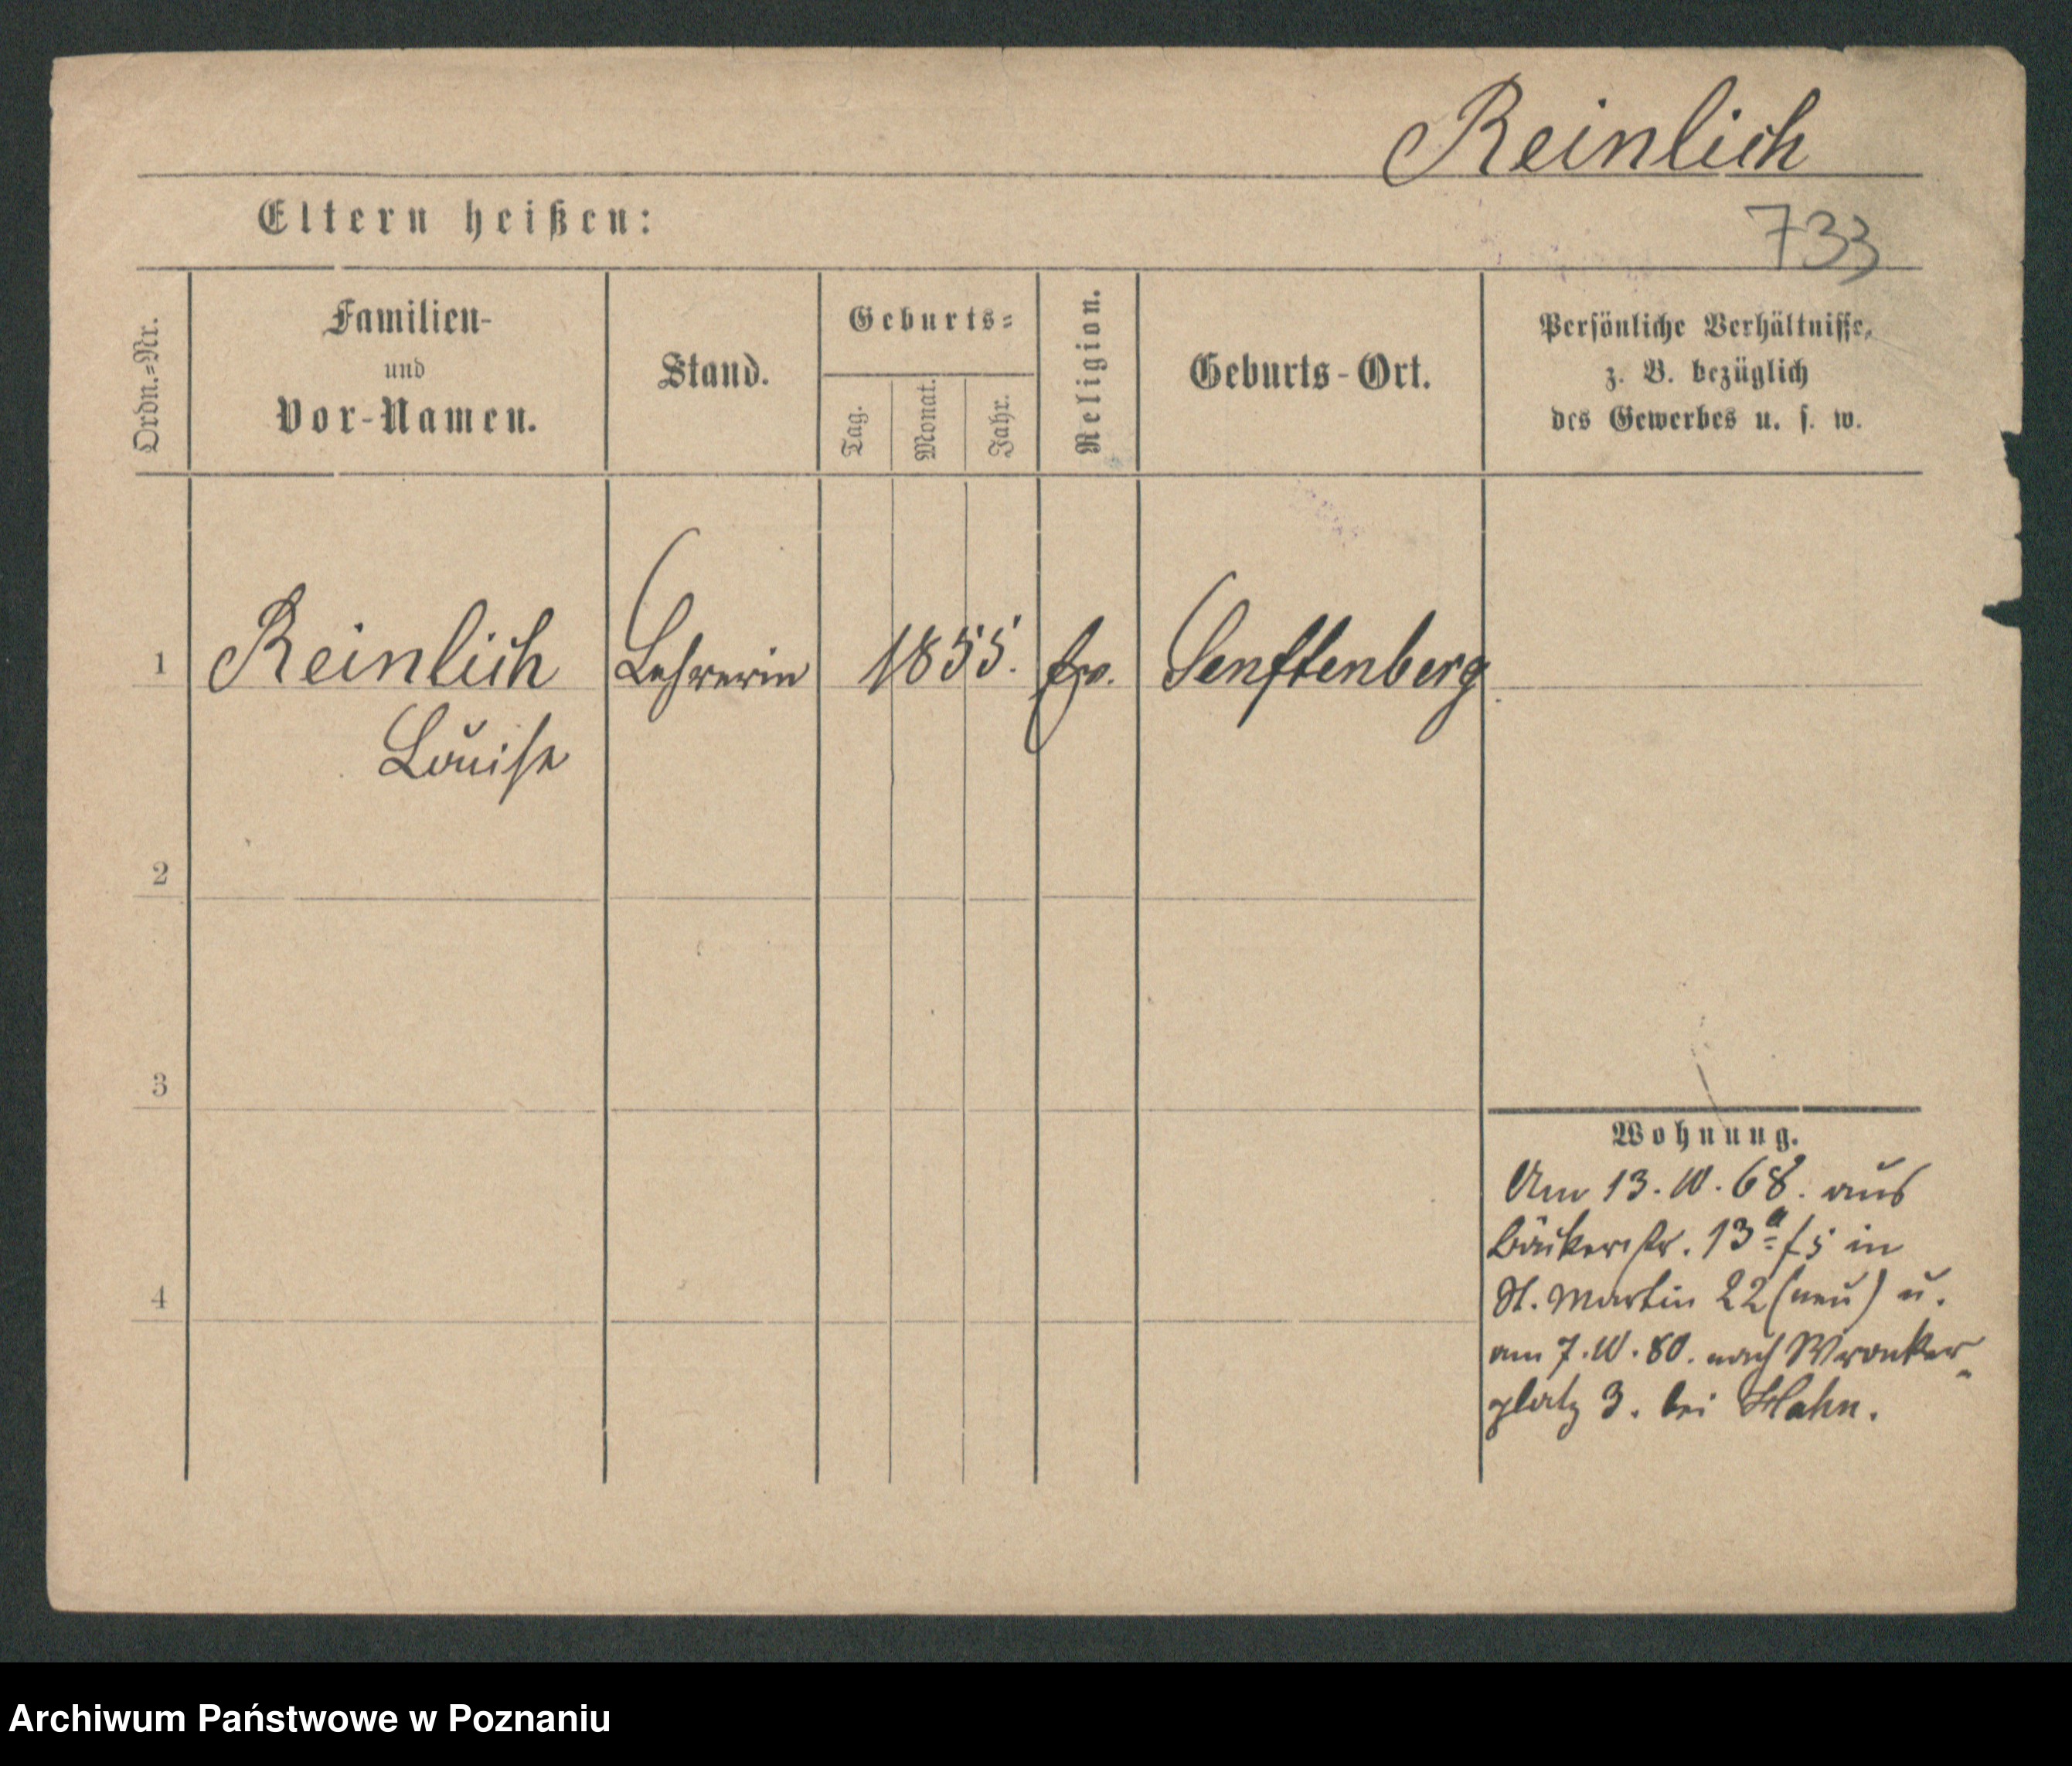 Reinlich
Eltern heißen:
733
Ordn.=Nr.
Familien-
und
Vor-Namen.
Stand.
Geburts=
Tag.
Monat.
Jahr.
Religion.
Geburts-Ort.
Persönliche Verhältnisse,
z. B. bezüglich
des Gewerbes u. s. w.
1 Reinlich Lehrerin 1855. Senftenberg
Louise
2
3
4
Wohnung.
Am 13. 68. aus
Bäckerstr. 13a in
St. Martin 22 (neu) u.
am 7. 80. nach Wronker-
platz 3. bei Hahn.
Archiwum Państwowe w Poznaniu